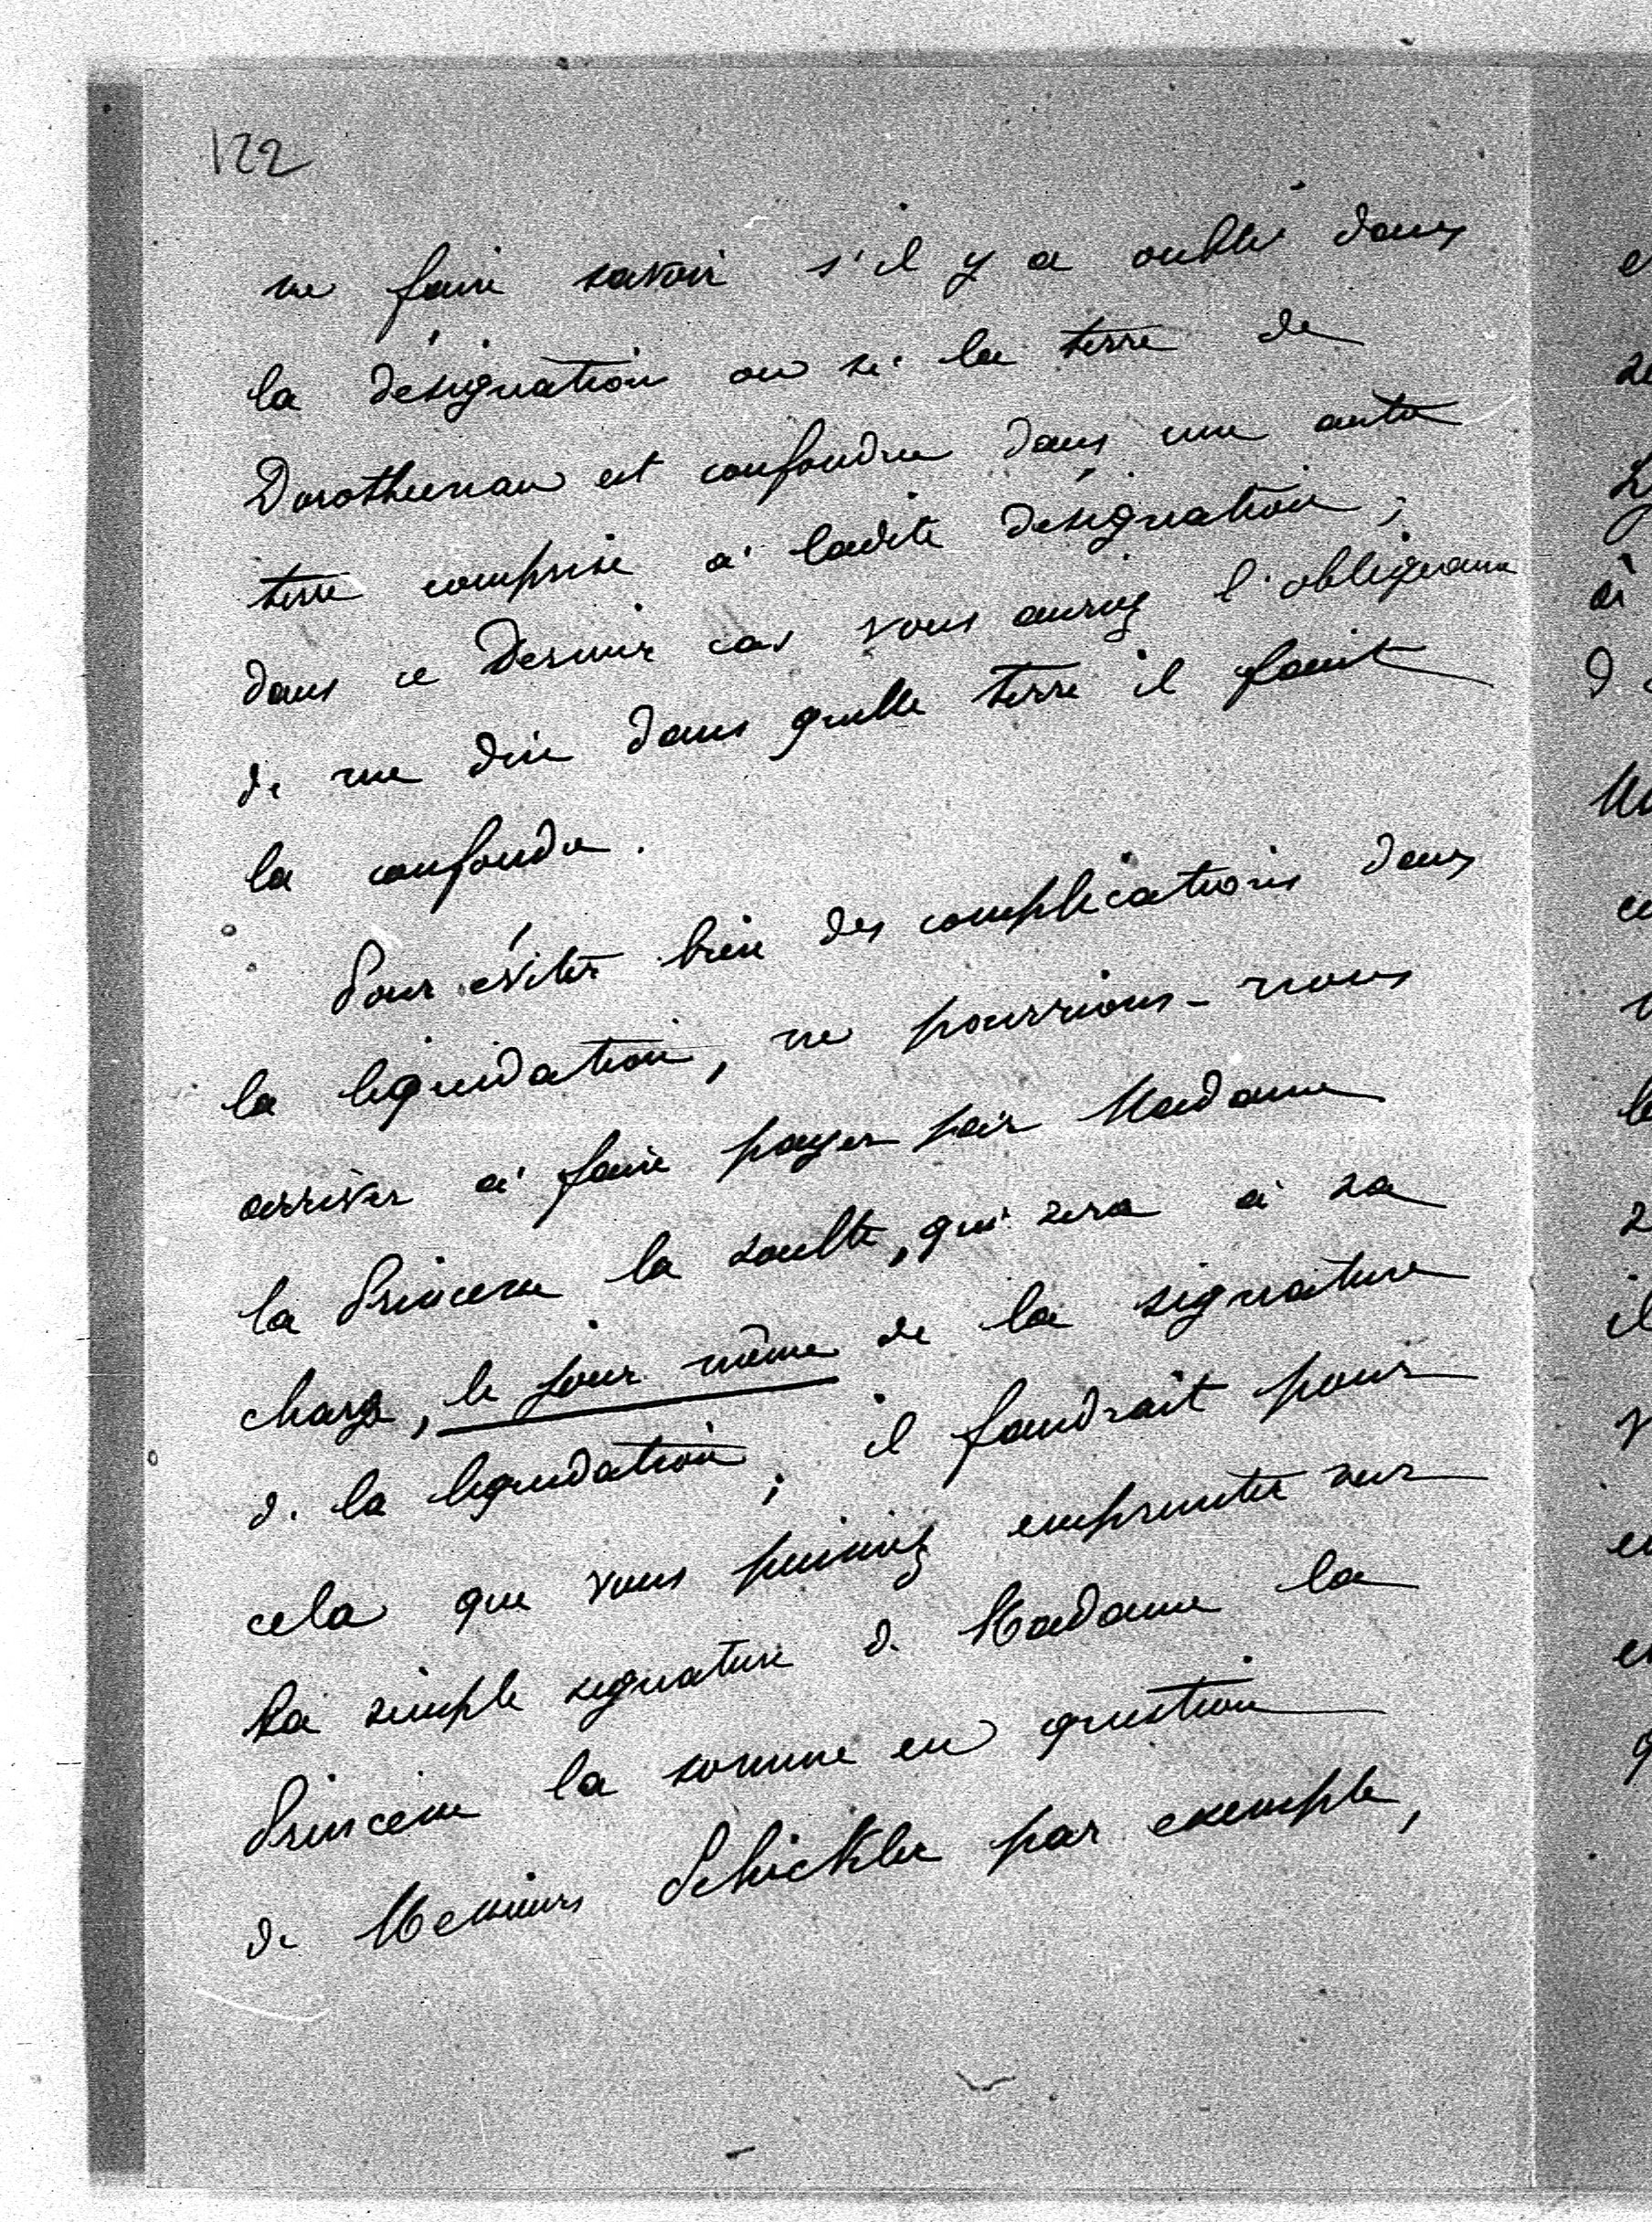 122
me faire savoir s'il y a oubli dans
la désignation ou si la terre de
Dorotheenau est confondue dans une autre
terre comprise à ladite désignation ;
dans ce dernier cas vous auriez l'obligeance
de me dire dans quelle terre il faut
la confondre.
Pour éviter bien des complications dans
la liquidation, ne pourrions-nous
arriver à faire payer par Madame
la Princesse la soulte, qui sera à sa
charge, le jour même de la signature
de la liquidation ; il faudrait pour
cela que vous puissiez emprunter sur
la simple signature de Madame la
Princesse la somme en question
de Messieurs Schickler par exemple,